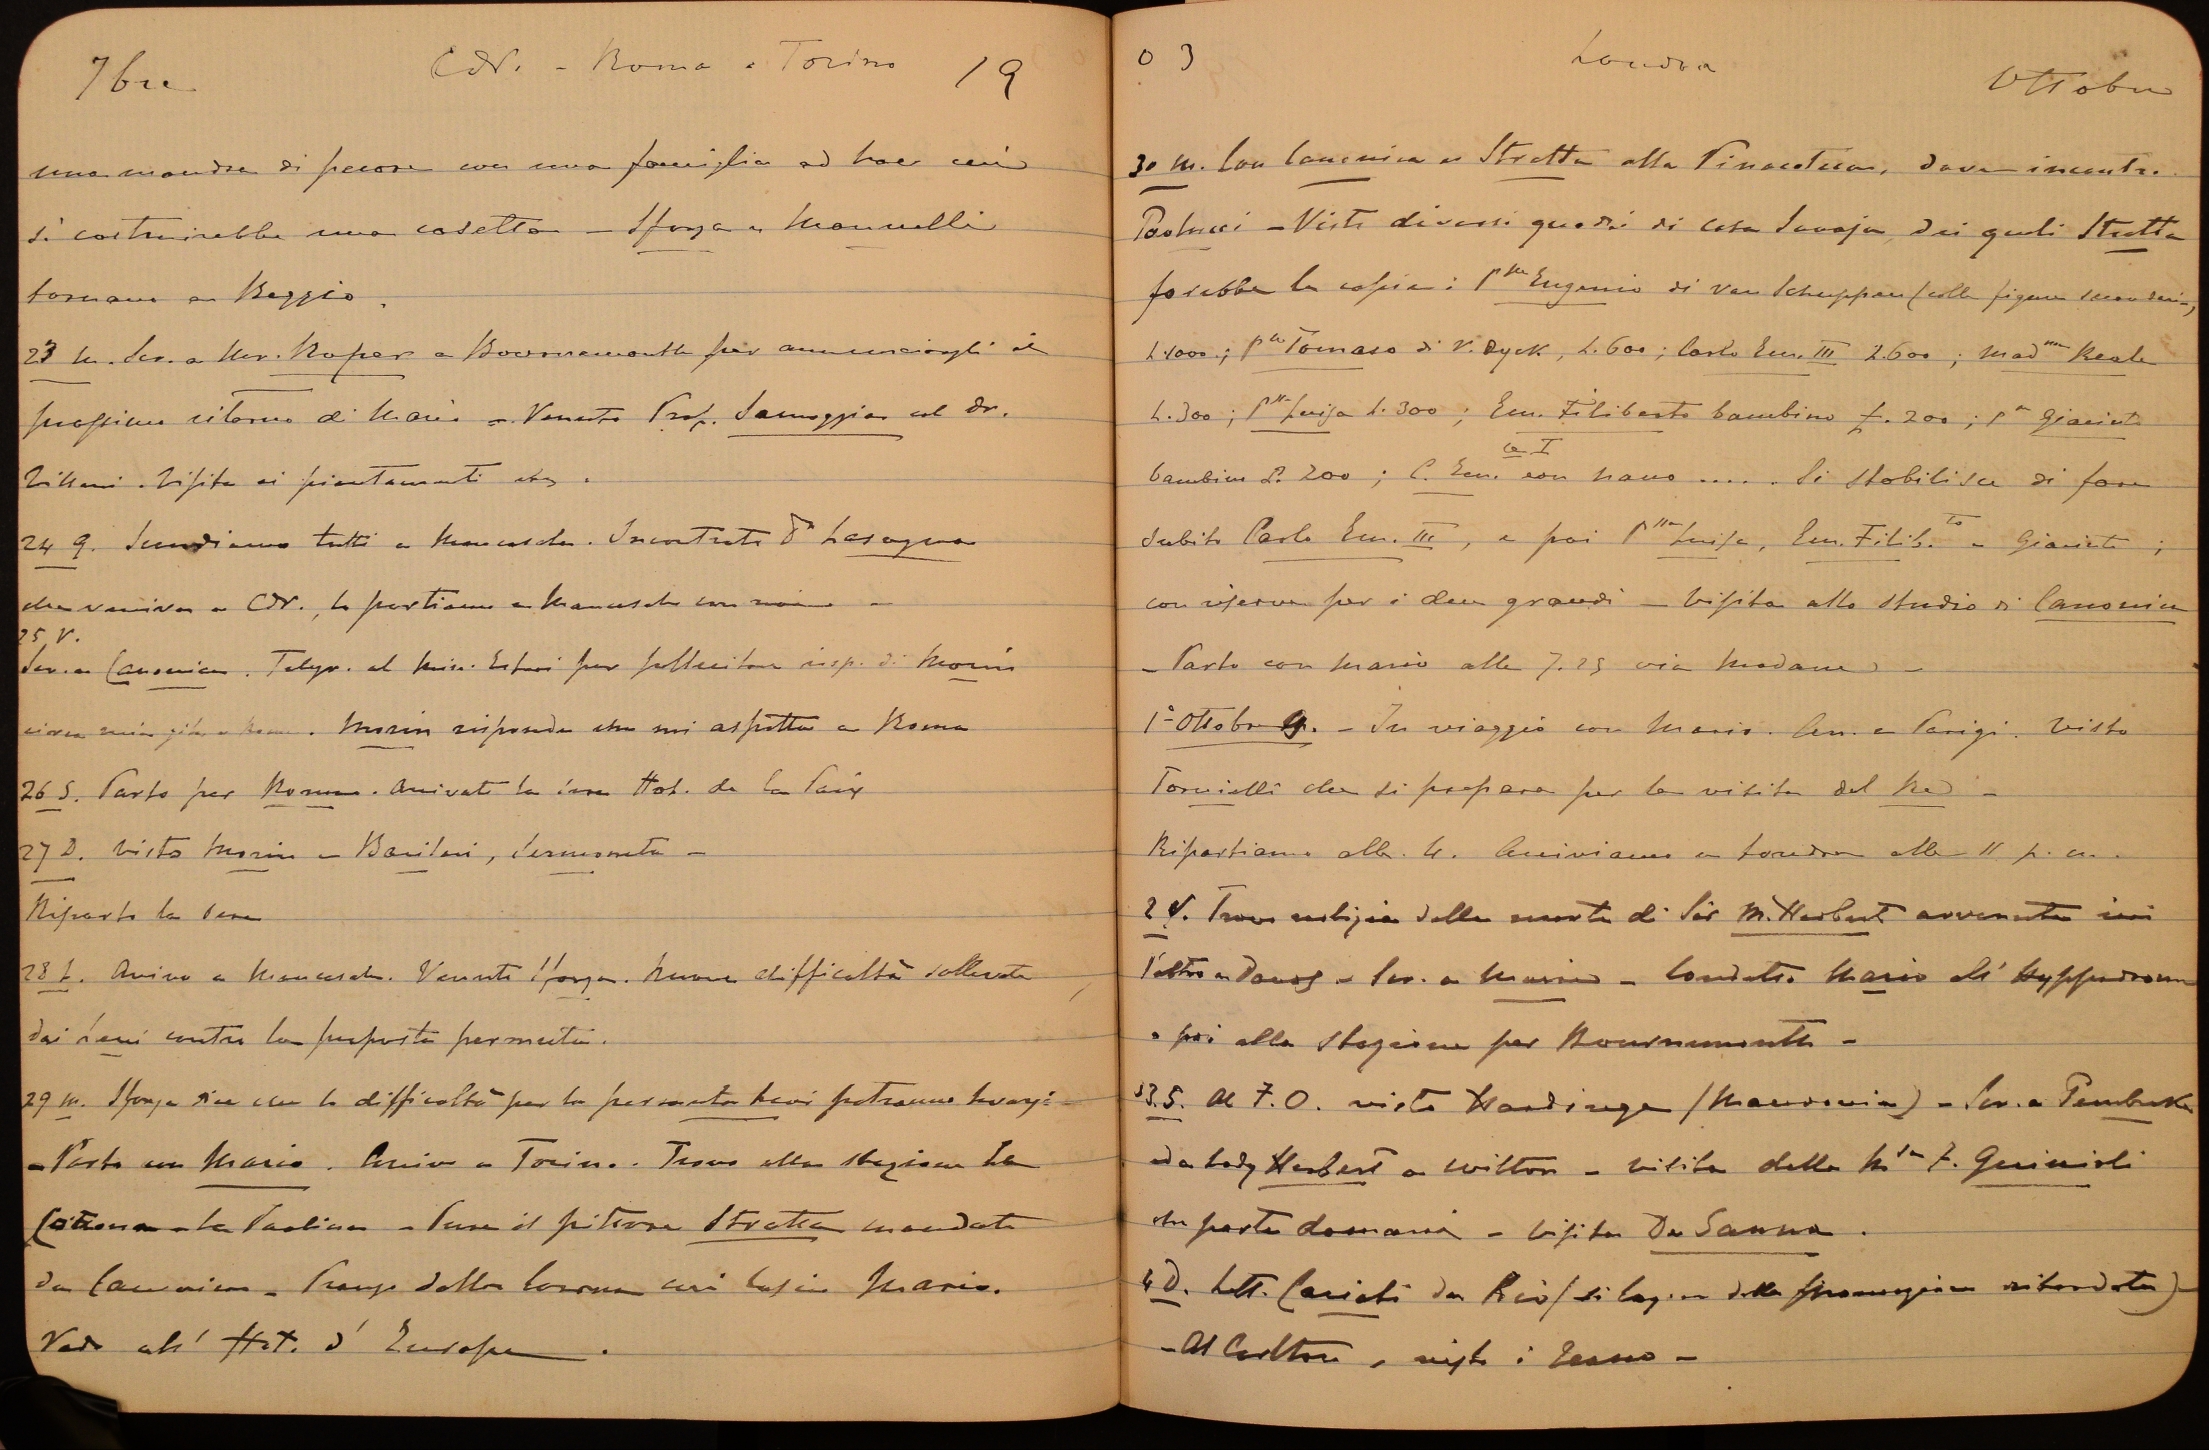 7bre
CdV. - Roma e Torino
19
una mandra di pecore con una famiglia ad hoc cui
si costruirebbe una casetta - Sforza e Mannelli
tornano a Reggio.
23 m. Scr. a Mr. Roper a Bournemouth per annunciargli il
prossimo ritorno di Mario - Venuto Prof. Samoggia col Dr.
Villani. Visita ai piantamenti etc.
24 g. Scendiamo tutti a Mancasale. Incontrato Lasagna
che veniva a CdV., lo portiamo a Mancasale con noi -
25 V.
Scr. a Canonica. Telegr. al Min. Esteri per sollecitare risp. di Morin
circa mia gita a Roma. Morin risponde che mi aspetta a Roma
26 S. Parto per Roma. Arrivato la sera Hot. de la Paix
27 D. Visto Morin - Barilari, Sermoneta -
Riparto la sera
28 L. Arrivo a Mancasale. Venuto Sforza. Nuove difficoltà sollevate
dai contro la proposta permuta.
29 m. Sforza dice che le difficoltà per la permuta
- Parto con Mario. Arrivo a Torino. Trovo alla stazione La
e la Paolina - Pure il pittore Stratta mandato
da Canonica - Pranzo dalla cui lascio Mario.
Vado all' Hot. d' Europe.
03
Londra
Ottobre
30 m. Con Canonica e Stratta alla Pinacoteca, dove incontro
Paolucci - Visti diversi quadri di casa Savoja, dei quali Stratta
farebbe la copia: Pe Eugenio di van Schuppen (colle figure secondarie,
L.1000.; Pe Tomaso di V. Dyck, L. 600; Carlo Em. III L.600; Mad Reale
L.300; Pssa Luisa L. 300; Em. Filiberto bambino £. 200; Fr Giacinto
bambino L. 200; C. Em. I con nano ..... Si stabilisce di fare
subito Carlo Em. III, e poi Pssa Luisa, Em. Filib.to e Giacinto;
con riserva per i due grandi - Visita allo studio di Canonica
- Parto con Mario alle 7.25 via Modane -
1° Ottobre G. - In viaggio con Mario. Arr. a Parigi. Visto
Tornielli che si prepara per la visita del Re -
Ripartiamo alle 4. Arriviamo a Londra alle 11 p.m.
2 V. Trovo notizia della morte di Sir M. Herbert avvenuta ieri
l'altro a Davos - Scr. a Morin - Condotto Mario all' Hyppodrome
e poi alla stazione per Bournemouth -
3.S. Al F.O. visto Hardinge (Macedonia) - Scr. a Pembroke
ed a Lady Herbert a Wilton - visita della Msa F. Guiccioli
che parte domani - Visita De Sanna.
4 D. Lett. Cariati da Rio (si lagna della promozione ritardata) -
- Al Carlton, visto i